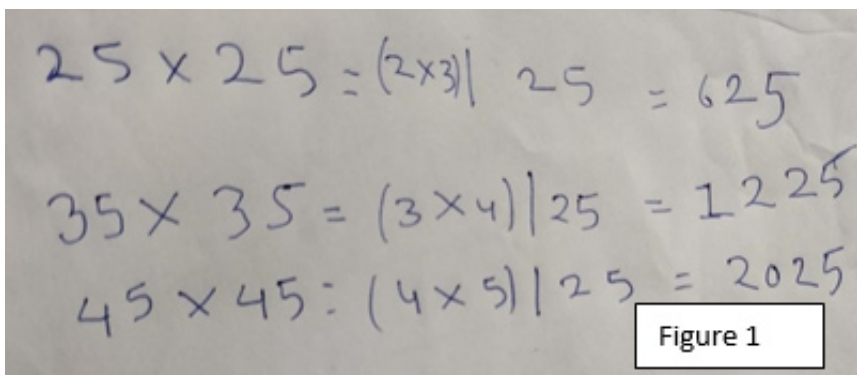 25 × 25 = (2×3)| 25 = 625
35 × 35 = (3×4)|25 = 1225
45 × 45 = (4×5)|25 = 2025
Figure 1